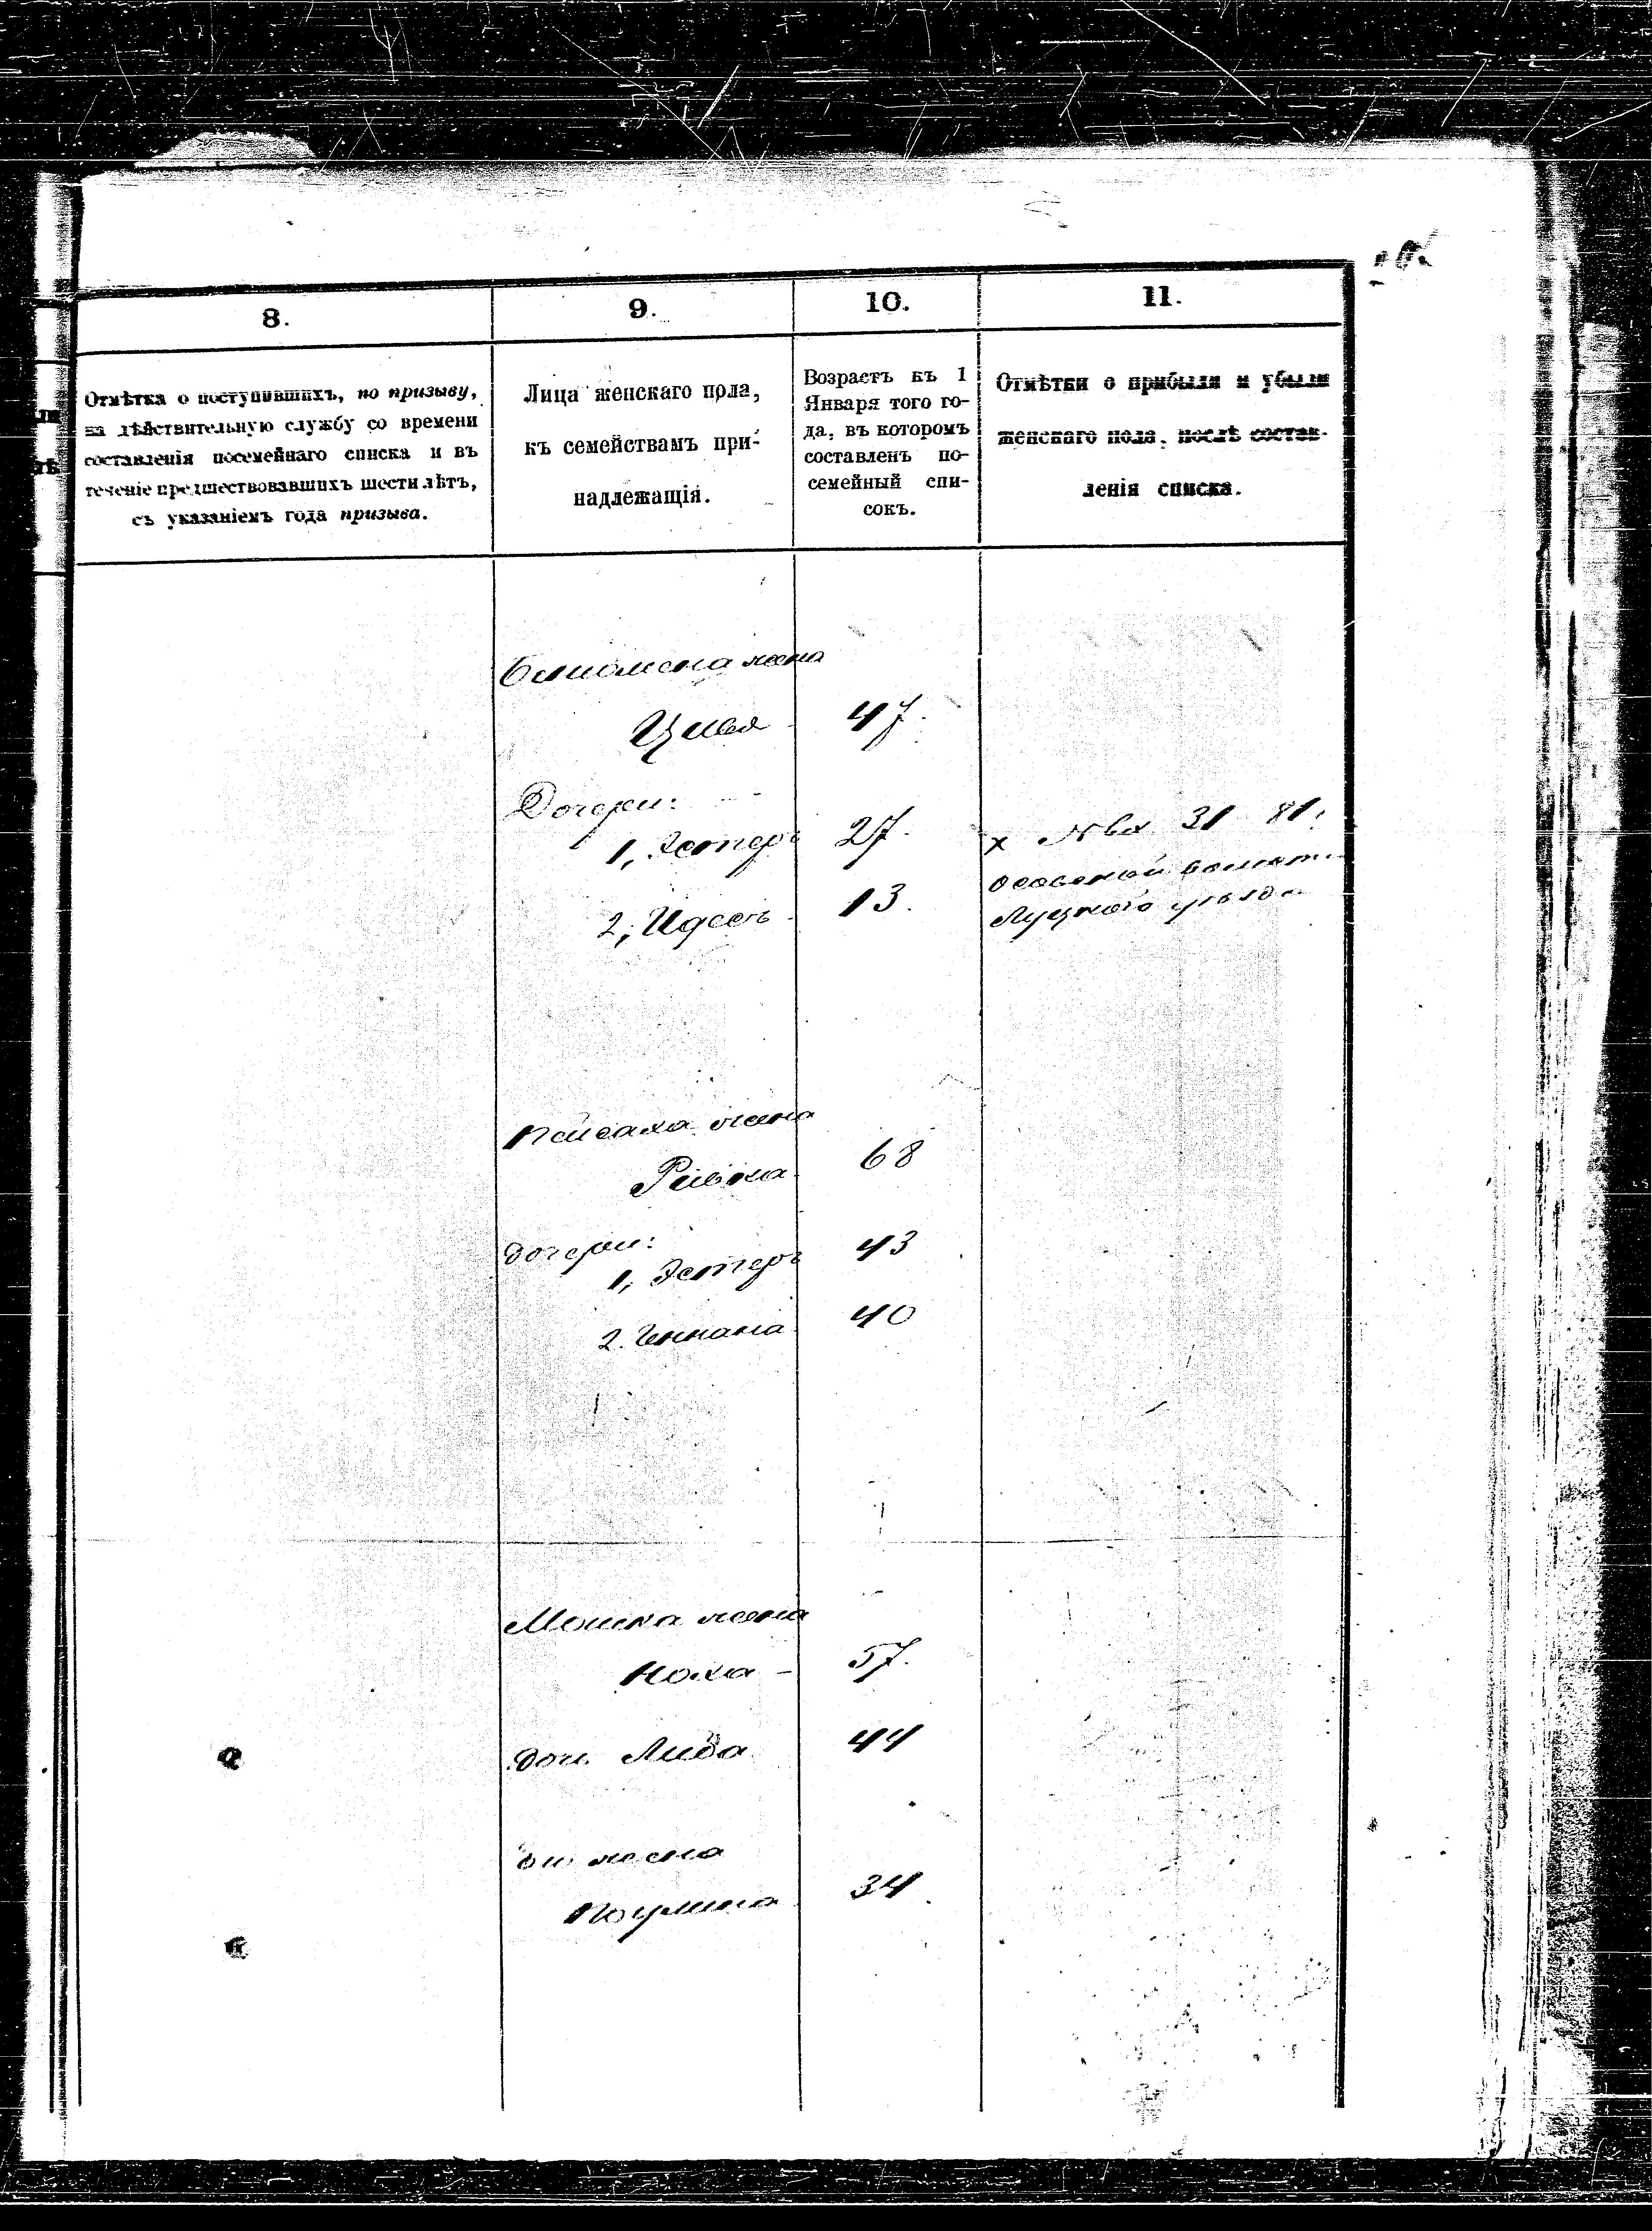 8.
9.
10.
11.
Отмѣтка о поступившихъ, по призыву,
на дѣйствительную службу со времени
составленія посемейнаго списка и въ
теченіе предшествовавшихъ шести лѣтъ,
съ указаніемъ года призыва.
Лица женскаго пола,
къ семействамъ при-
надлежащія.
Возрастъ къ 1
Января того го-
да, въ которомъ
составленъ по-
семейный спи-
сокъ.
Отмѣтки о прибыли и убыли
женскаго пола, послѣ состав-
ленія списка.
жена
Цивья 47.
Дочери:
1, Эстеръ 27.
2, Идесъ 13.
х 31 81.
Луцкаго уѣзда
Пейсаха жена
Ривка 68
дочери:
1, Эстеръ 43
2. 40
Мошка жена
Хоха 57.
доч. Либа 44
жена
34